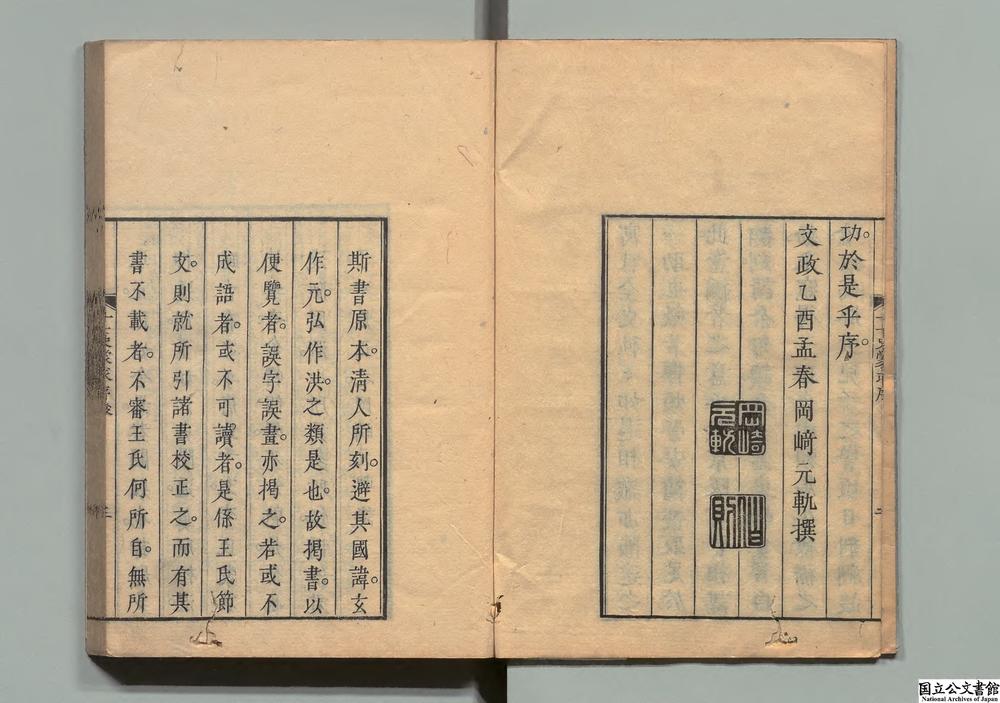 功於是乎序。
文政乙酉孟春岡﨑元軌撰
岡﨑
元軌
斯書原本。淸人所刻。避其國諱。玄
作元。弘作洪。之類是也。故揭書。以
便覽者。誤字誤畫。亦揭之。若或不
成語者。或不可讀者。是係王氏節
文。則就所引諸書校正之。而有其
書不載者。不審王氏何所自。無所
国立公文書館
National Archives of Japan